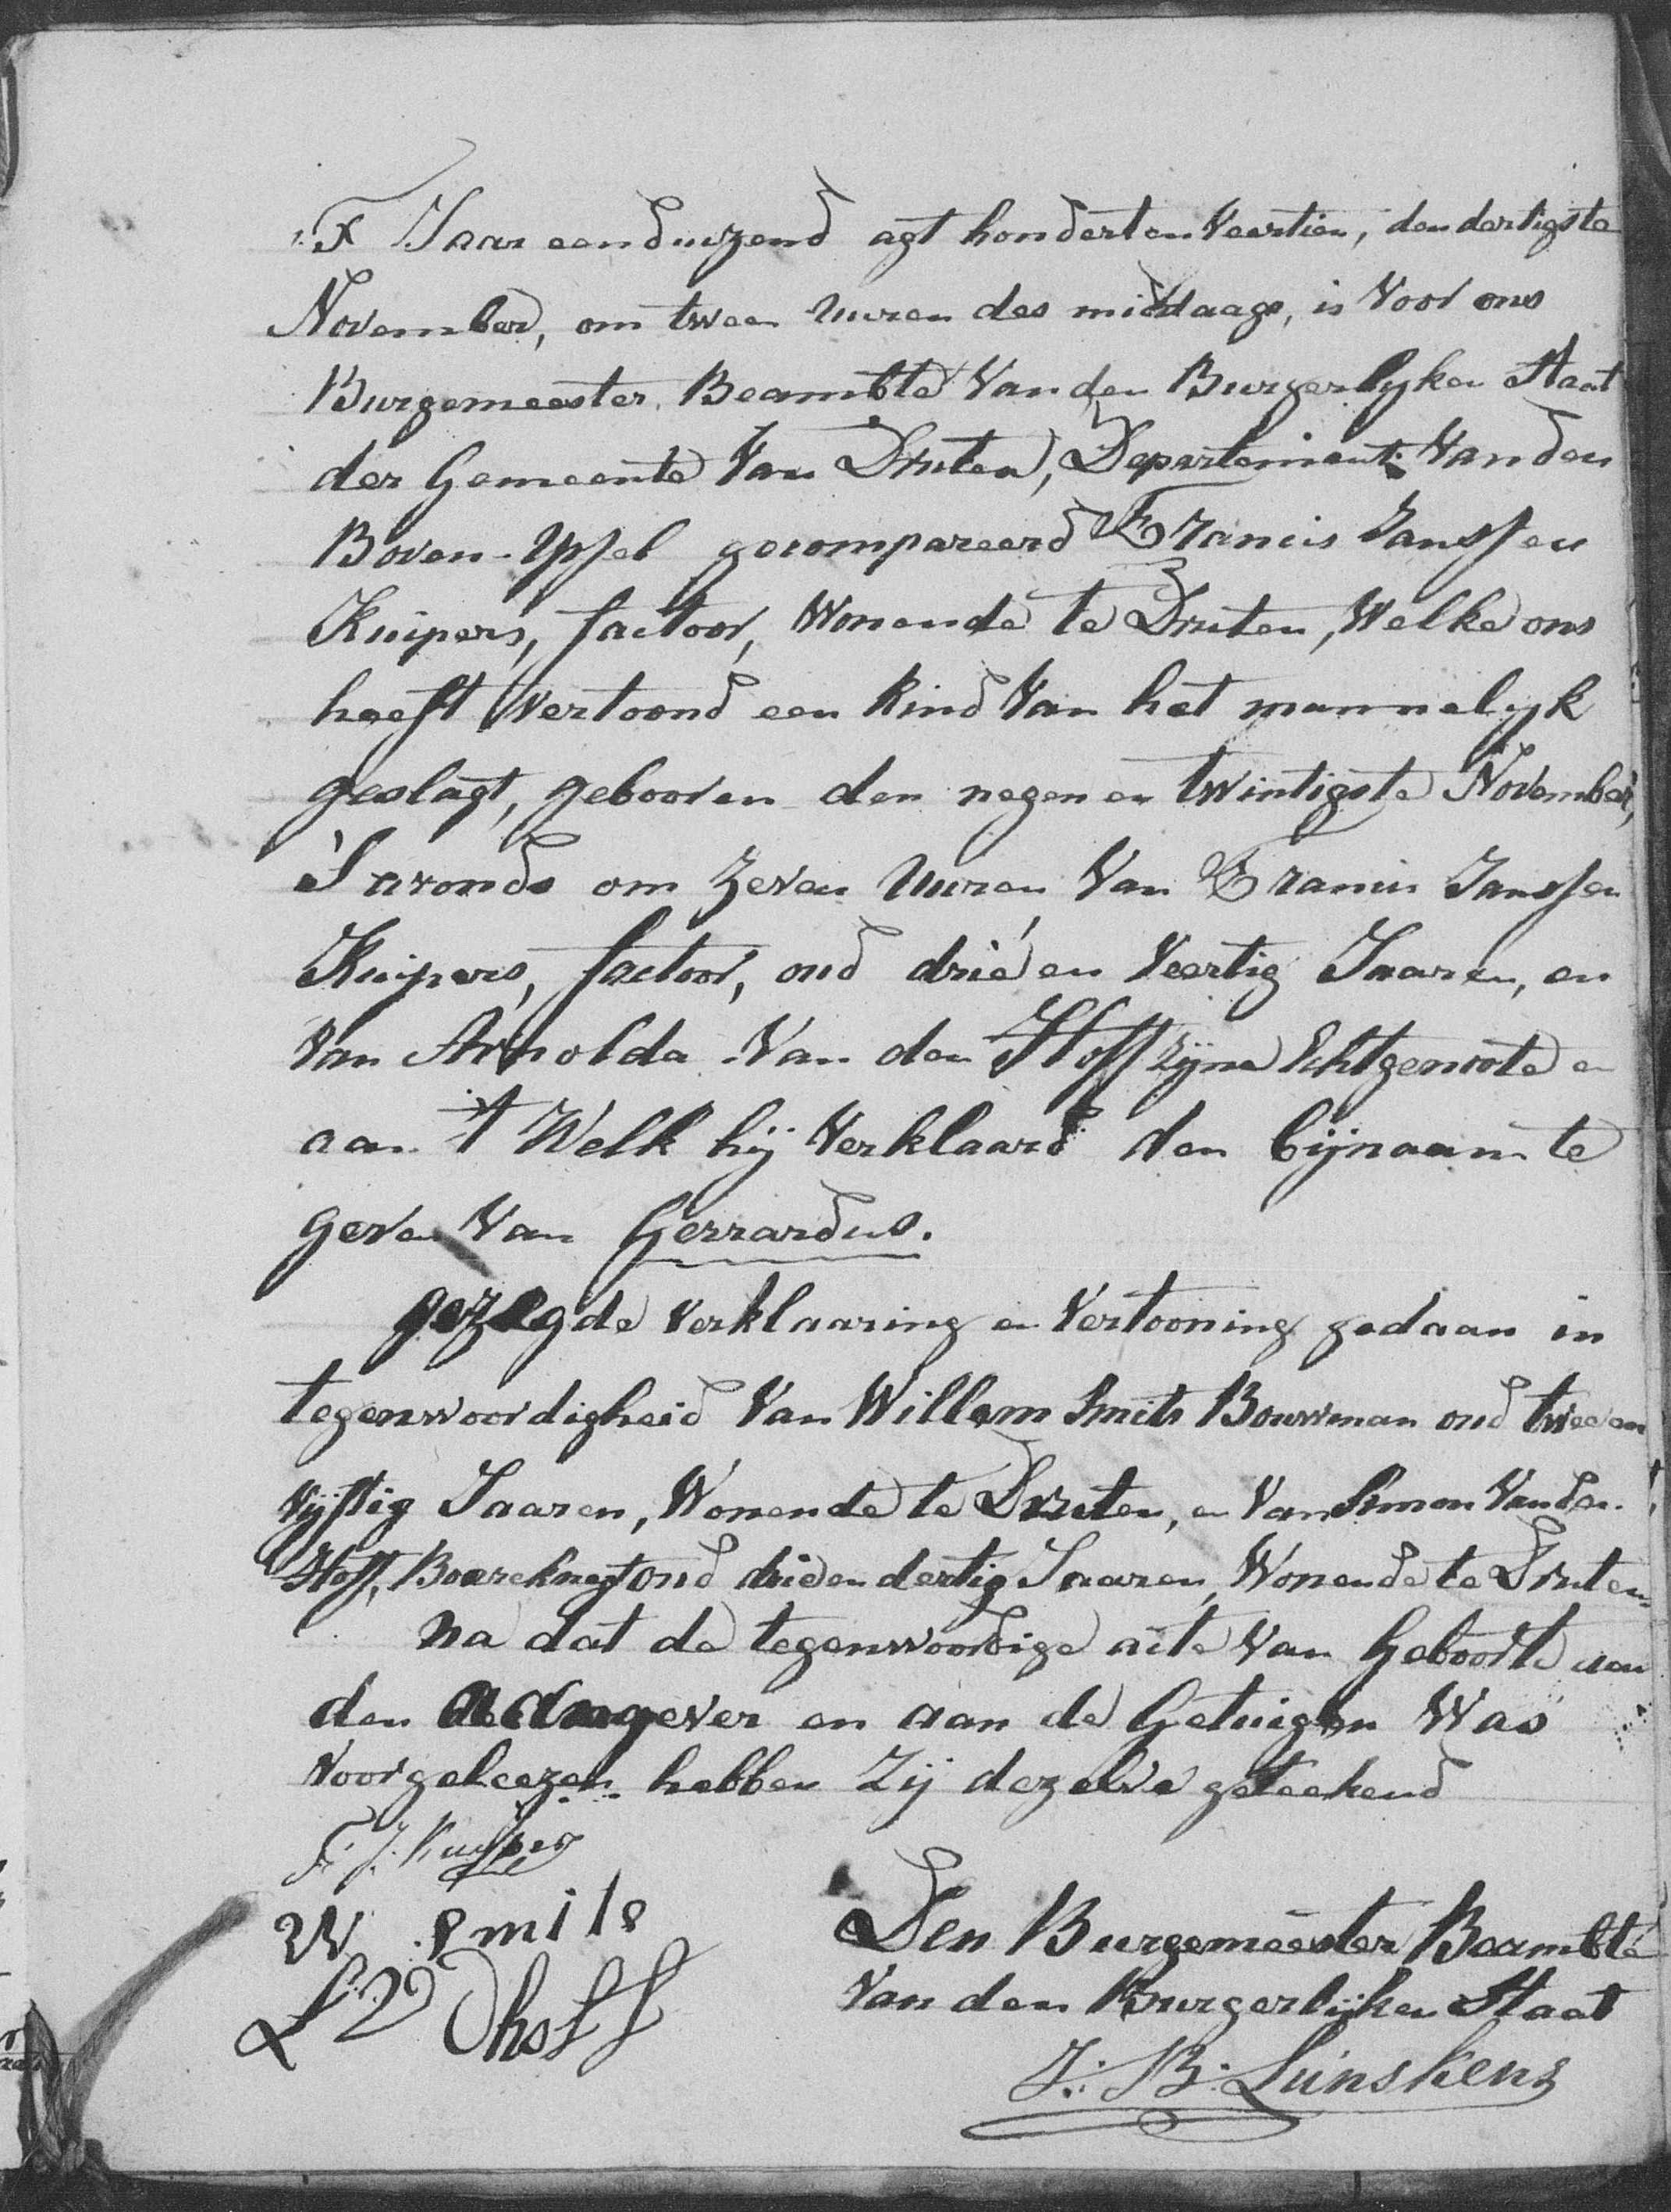 'T Jaar eenduyzend agt hondert en Veertien, den dertigste
November, om twee Uuren des middaags, is Voor ons
Burgemeester Beambte Van den Burgerlyken Staat
der Gemeente Van Druten, Departement Van den
Boven-Yssel gecompareerd Francis Janssen
Kuipers, factoor, Wonende te Druten, Welke ons
heeft Vertoond een Kind Van het mannelyk
geslagt, gebooren den negen en twintigste November,
'S avonds om Zeven Uuren Van Francis Janssen
Kuipers, factoor, oud drie en Veertig Jaaren, en
Van Arnolda Van den Hoff zijne Echtgenoote en
aan 't Welk hij Verklaard den bijnaam te
geven Van Gerrardus.
gezegde Verklaaring en Vertooning gedaan in
tegenwoordigheid Van Willem Smits Bouwman oud twee en
Vijftig Jaaren, Wonende te Druten, en Van Simon Van den
Hoff, Boereknegt oud drie en dertig Jaaren, Wonende te Druten,
Na dat de tegenwoordige acte Van Geboorte aan
den aangever en aan de Getuigen Was
Voorgeleezen hebben Zij dezelve geteekend
F. J. Kuijpers
W Smits
S V D hoff
Den Burgemeester Beambte
Van den Burgerlijken Staat
J. B. Linskens